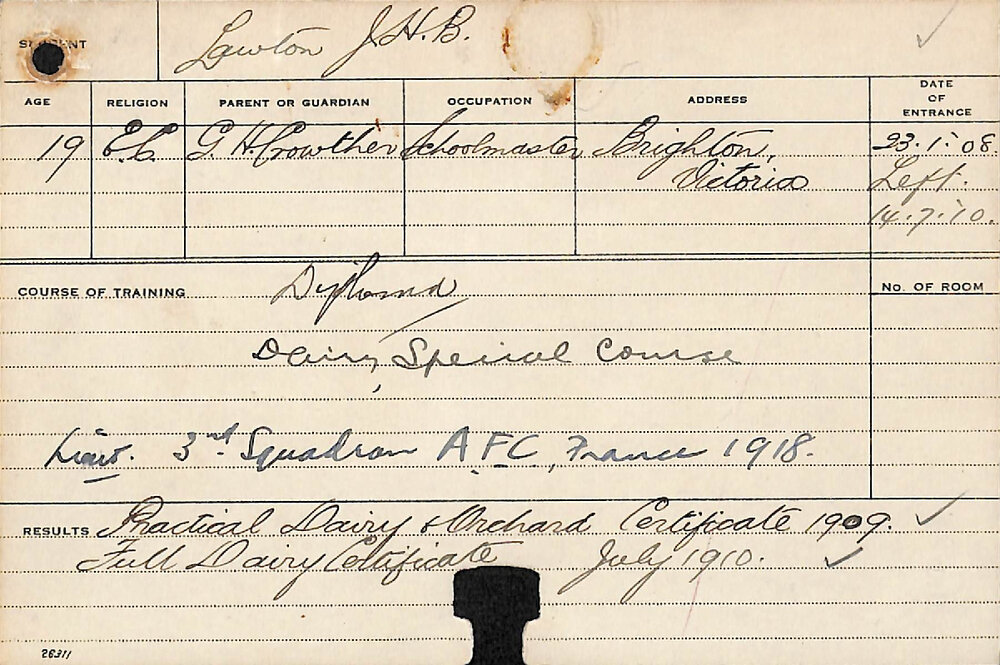 STUDENT Lawton J.H.B.
AGE RELIGION PARENT OR GUARDIAN OCCUPATION ADDRESS DATE OF ENTRANCE
19 E.C. G. H. Crowther Schoolmaster Brighton, 23.1.08.
Victoria Left.
14.7.10.
COURSE OF TRAINING Diploma No. OF ROOM
Dairy Special Course
Lieut. 3rd. Squadron A.F.C., France 1918.
RESULTS Practical Dairy & Orchard Certificate 1909. ✓
Full Dairy Certificate July 1910. ✓
26311